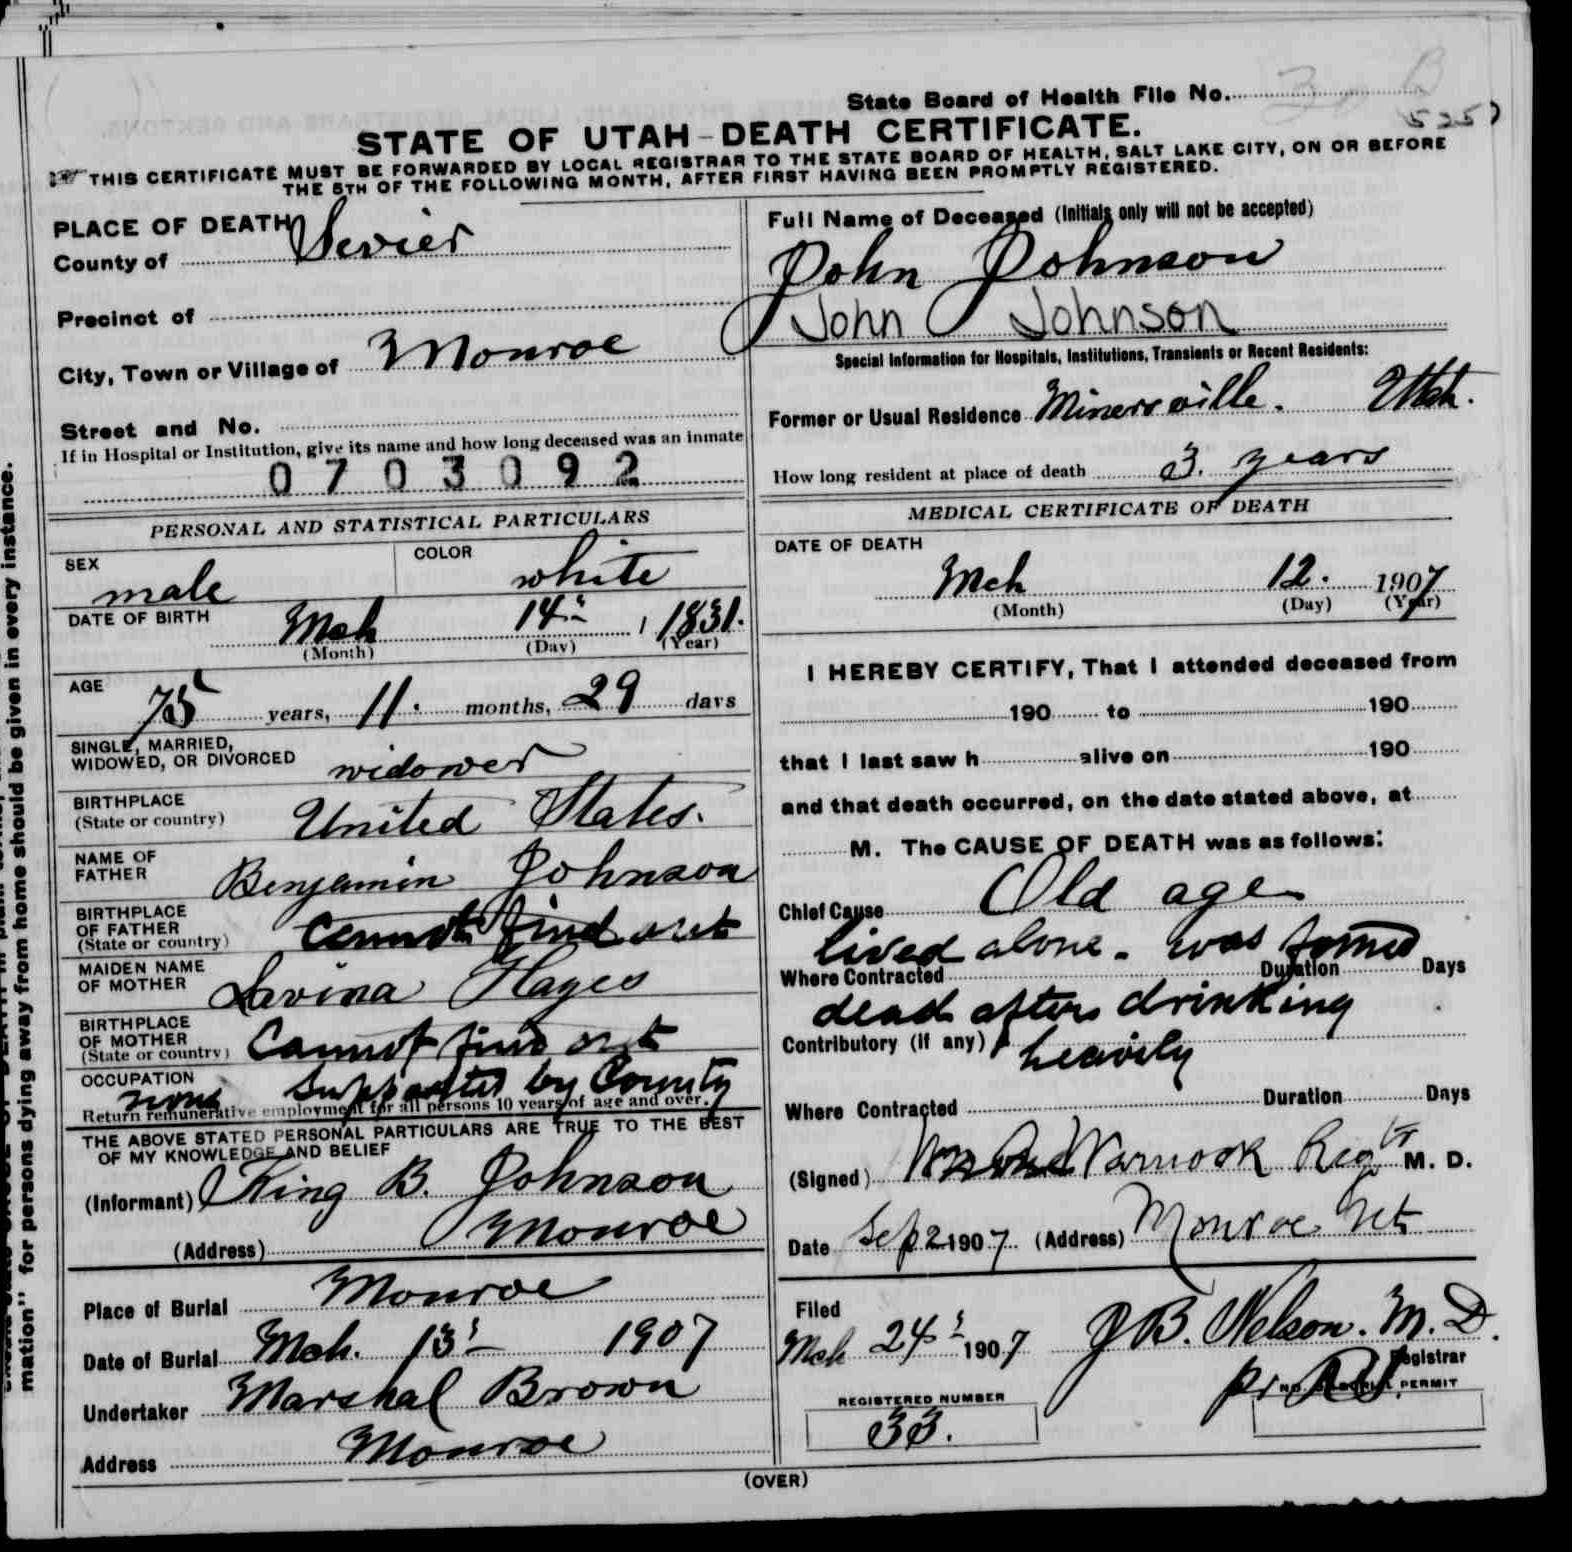 State Board of Health File No.
5257
STATE OF UTAH-DEATH CERTIFICATE.
THIS CERTIFICATE MUST BE FORWARDED BY LOCAL REGISTRAR TO THE STATE BOARD OF HEALTH, SALT LAKE CITY, ON OR BEFORE
THE 5TH OF THE FOLLOWING MONTH, AFTER FIRST HAVING BEEN PROMPTLY REGISTERED.
PLACE OF DEATH
County of Sevier
Precinct of
City, Town or Village of Monroe
Street and No.
If in Hospital or Institution, give its name and how long deceased was an inmate
0703092
PERSONAL AND STATISTICAL PARTICULARS
SEX male COLOR white
DATE OF BIRTH Mch 14 1831.
(Month) (Day) (Year)
AGE 75 years, 11. months, 29 days
SINGLE, MARRIED,
WIDOWED, OR DIVORCED widower
BIRTHPLACE
(State or country) United States.
NAME OF
FATHER Benjamin Johnson
BIRTHPLACE
OF FATHER
(State or country) Cannot find out
MAIDEN NAME
OF MOTHER Lavina Hayes
BIRTHPLACE
OF MOTHER
(State or country) Cannot find out
OCCUPATION
none supported by County
Return remunerative employment for all persons 10 years of age and over.
THE ABOVE STATED PERSONAL PARTICULARS ARE TRUE TO THE BEST
OF MY KNOWLEDGE AND BELIEF
(Informant) King B. Johnson
(Address) Monroe
Place of Burial Monroe
Date of Burial Mch. 13 1907
Undertaker Marshal Brown
Address Monroe
Full Name of Deceased (Initials only will not be accepted)
John Johnson
John Johnson
Special Information for Hospitals, Institutions, Transients or Recent Residents:
Former or Usual Residence Minersville. Utah.
How long resident at place of death 3. years
MEDICAL CERTIFICATE OF DEATH
DATE OF DEATH
Mch 12. 1907
(Month) (Day) (Year)
I HEREBY CERTIFY, That I attended deceased from
190 to 190
that I last saw h alive on 190
and that death occurred, on the date stated above, at
M. The CAUSE OF DEATH was as follows:
Chief Cause Old age
lived alone. was found
Where Contracted Duration Days
dead after drinking
Contributory (if any) heavily
Where Contracted Duration Days
(Signed) Warnock Regtr M. D.
Date Sep 2 1907 (Address) Monroe Ut
Filed
Mch 24 1907 J B. Nelson. M. D.
Registrar
pr
REGISTERED NUMBER
33.
PERMIT
(OVER)
mation" for persons dying away from home should be given in every instance.